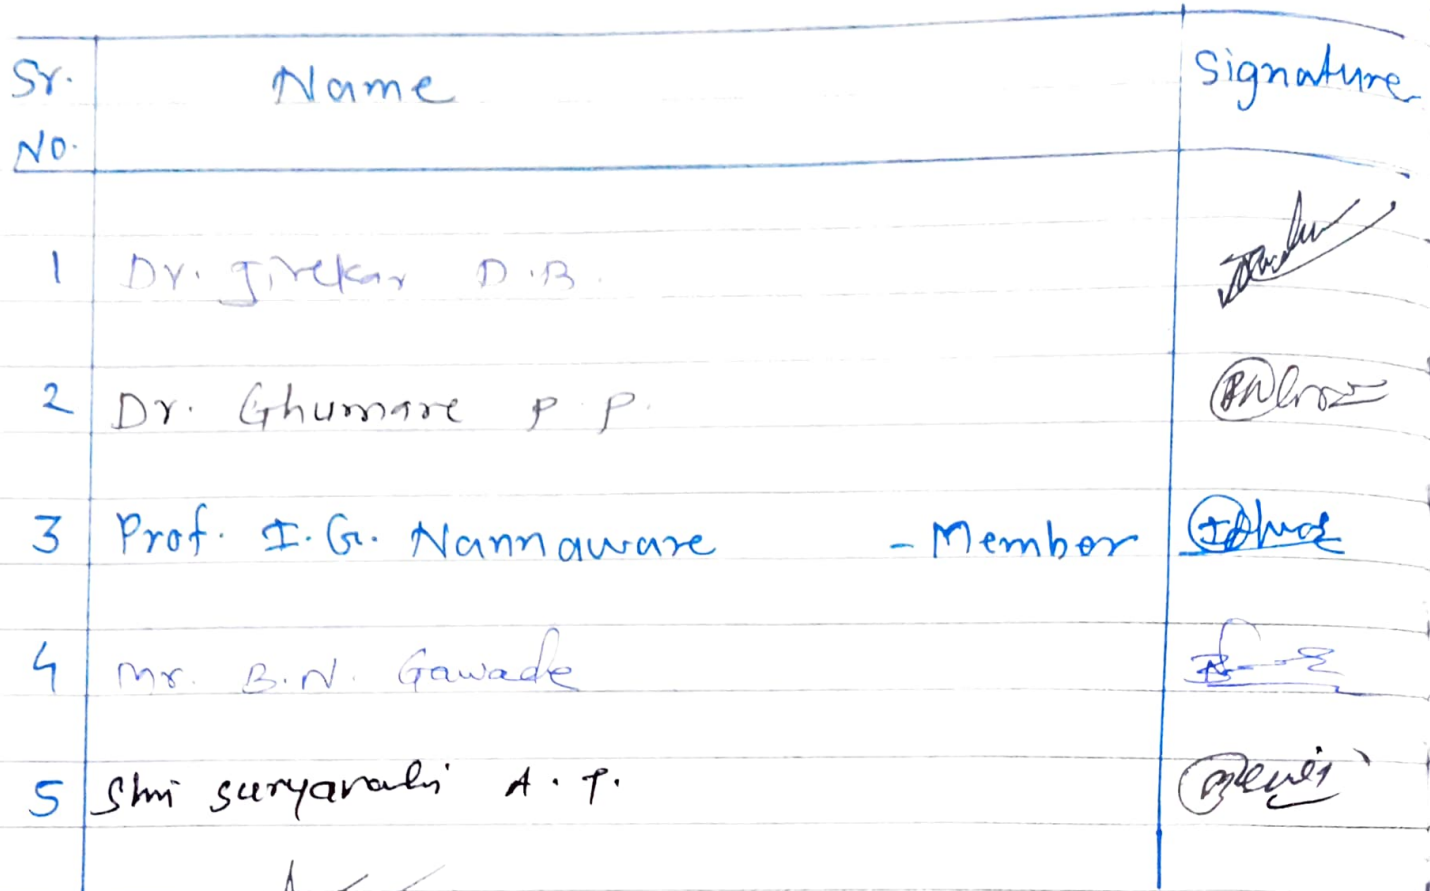 Sr. Name Signature
No.
1 Dr. Jirekar D.B.
2 Dr. Ghumare P.P.
3 Prof. I.G. Nannaware - Member
4 Mr. B.N. Gawade
5 Shri A.P.